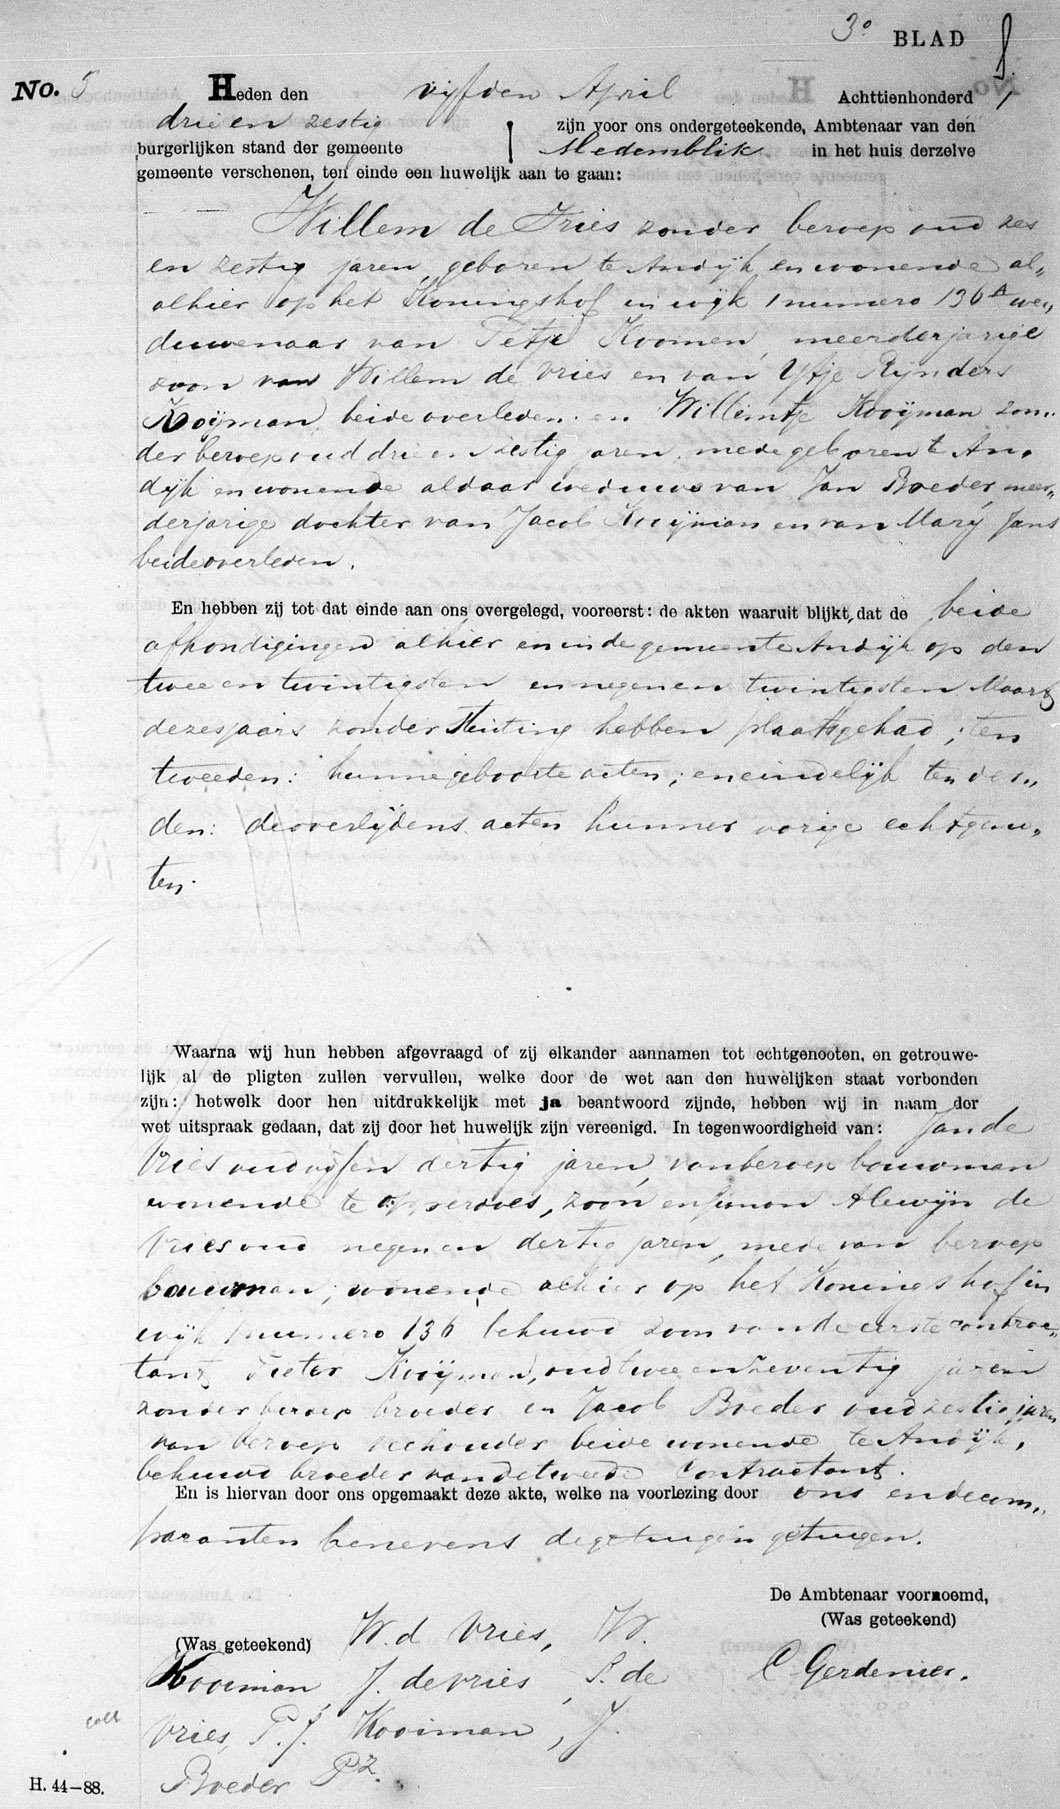 3º BLAD
No. 5 Heden den vijfden April Achttienhonderd
drie en zestig zijn voor ons ondergeteekende, Ambtenaar van den
burgerlijken stand der gemeente Medemblik in het huis derzelve
gemeente verschenen, ten einde een huwelijk aan te gaan:
Willem de Vries zonder beroep oud zes
en zestig jaren, geboren te Andijk, en wonende al„
alhier op het Koningshof in wijk 1 numero 136A we„
duwenaar van Tetje Koomen, meerderjarige
zoon van Willem de Vries en van Ytje Rijnders
Kooijman, beide overleden. en Willemtje Kooijman zon„
der beroep oud drie en zestig jaren, mede geboren te An„
dijk en wonende aldaar weduwe van Jan Broeder, meer„
derjarige dochter van Jacob Kooijman en van Marij Jans
beide overleden.
En hebben zij tot dat einde aan ons overgelegd, vooreerst: de akten waaruit blijkt, dat de beide
afkondigingen alhier en in de gemeente Andijk op den
twee en twintigsten en negen en twintigsten Maart
dezes jaars zonder stuiting hebben plaatsgehad; ten
tweeden: hunne geboorte acten; en eindelijk ten der„
den: de overlijdens acten hunner vorige echtgenoo„
ten.
Waarna wij hun hebben afgevraagd of zij elkander aannamen tot echtgenooten, en getrouwe-
lijk al de pligten zullen vervullen, welke door de wet aan den huwelijken staat verbonden
zijn: hetwelk door hen uitdrukkelijk met ja beantwoord zijnde, hebben wij in naam der
wet uitspraak gedaan, dat zij door het huwelijk zijn vereenigd. In tegenwoordigheid van: Jan de
Vries oud vijf en dertig jaren, van beroep bouwman
wonende te Opperdoes, zoon en Simon Alewijn de
Vries oud negen en dertig jaren, mede van beroep
bouwman, wonende alhier op het Koningshof in
wijk 1 numero 136 behuwd zoon van de eerste contrac„
tant, Pieter Kooijman, oud twee en zeventig jaren
zonder beroep broeder en Jacob Broeder oud zestig jaren
van beroep veehouder beide wonende te Andijk,
behuwd broeder van de tweede contractant.
En is hiervan door ons opgemaakt deze akte, welke na voorlezing door ons en de com„
paranten benevens de getuigen getuigen.
De Ambtenaar voornoemd,
(Was geteekend)
C Gerdenier.
(Was geteekend) W. d Vries, W.
Kooiman, J. de vries, S. de
Vries, P. J. Kooiman, J.
Broeder Pz.
coll
H. 44—88.